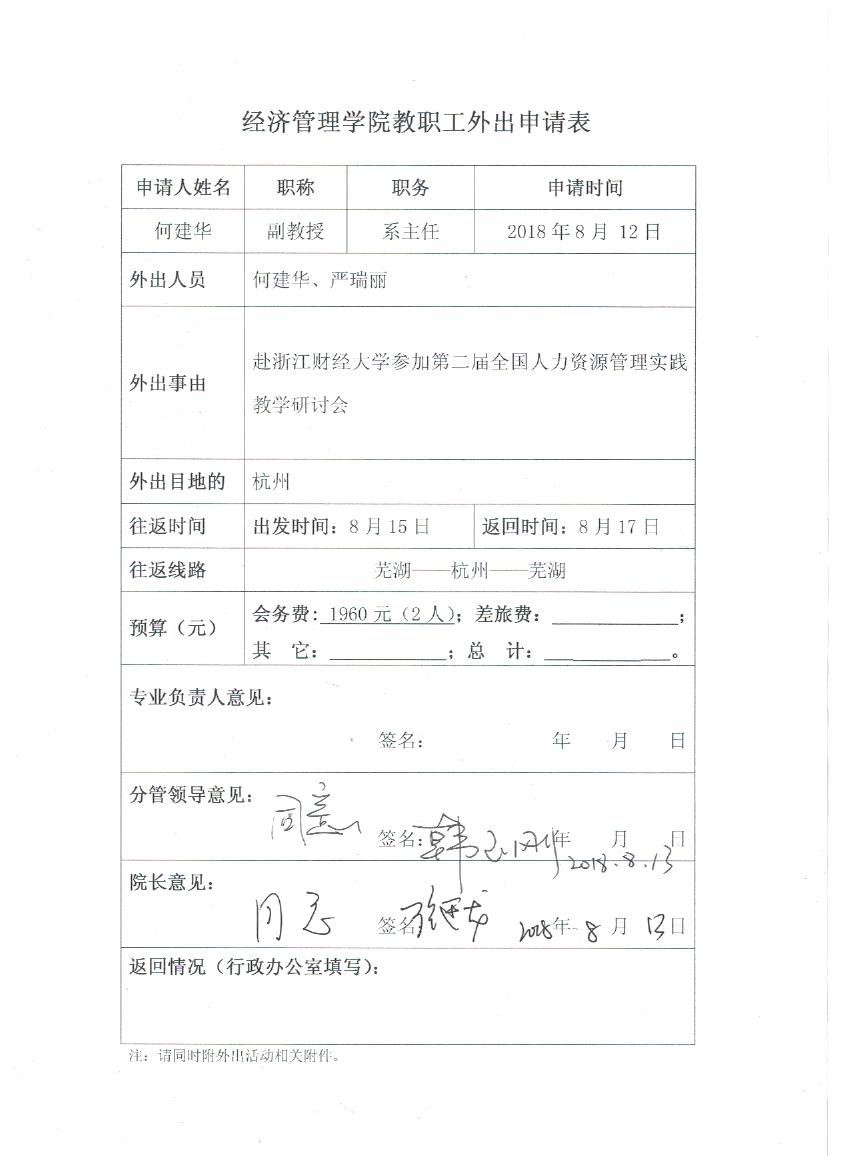 经济管理学院教职工外出申请表
申请人姓名 职称 职务 申请时间
何建华 副教授 系主任 2018年8月 12日
外出人员 何建华、严瑞丽
外出事由 赴浙江财经大学参加第二届全国人力资源管理实践
教学研讨会
外出目地的 杭州
往返时间 出发时间：8月15日 返回时间：8月17日
往返线路 芜湖——杭州——芜湖
预算（元） 会务费： 1960元（2人）；差旅费：____________；
其 它：____________；总 计：____________。
专业负责人意见：
签名： 年 月 日
分管领导意见： 同意
签名： 年 月 日
2018.8.13
院长意见：
同意 签名 2018年 8月 13日
返回情况（行政办公室填写）：
注：请同时附外出活动相关附件。